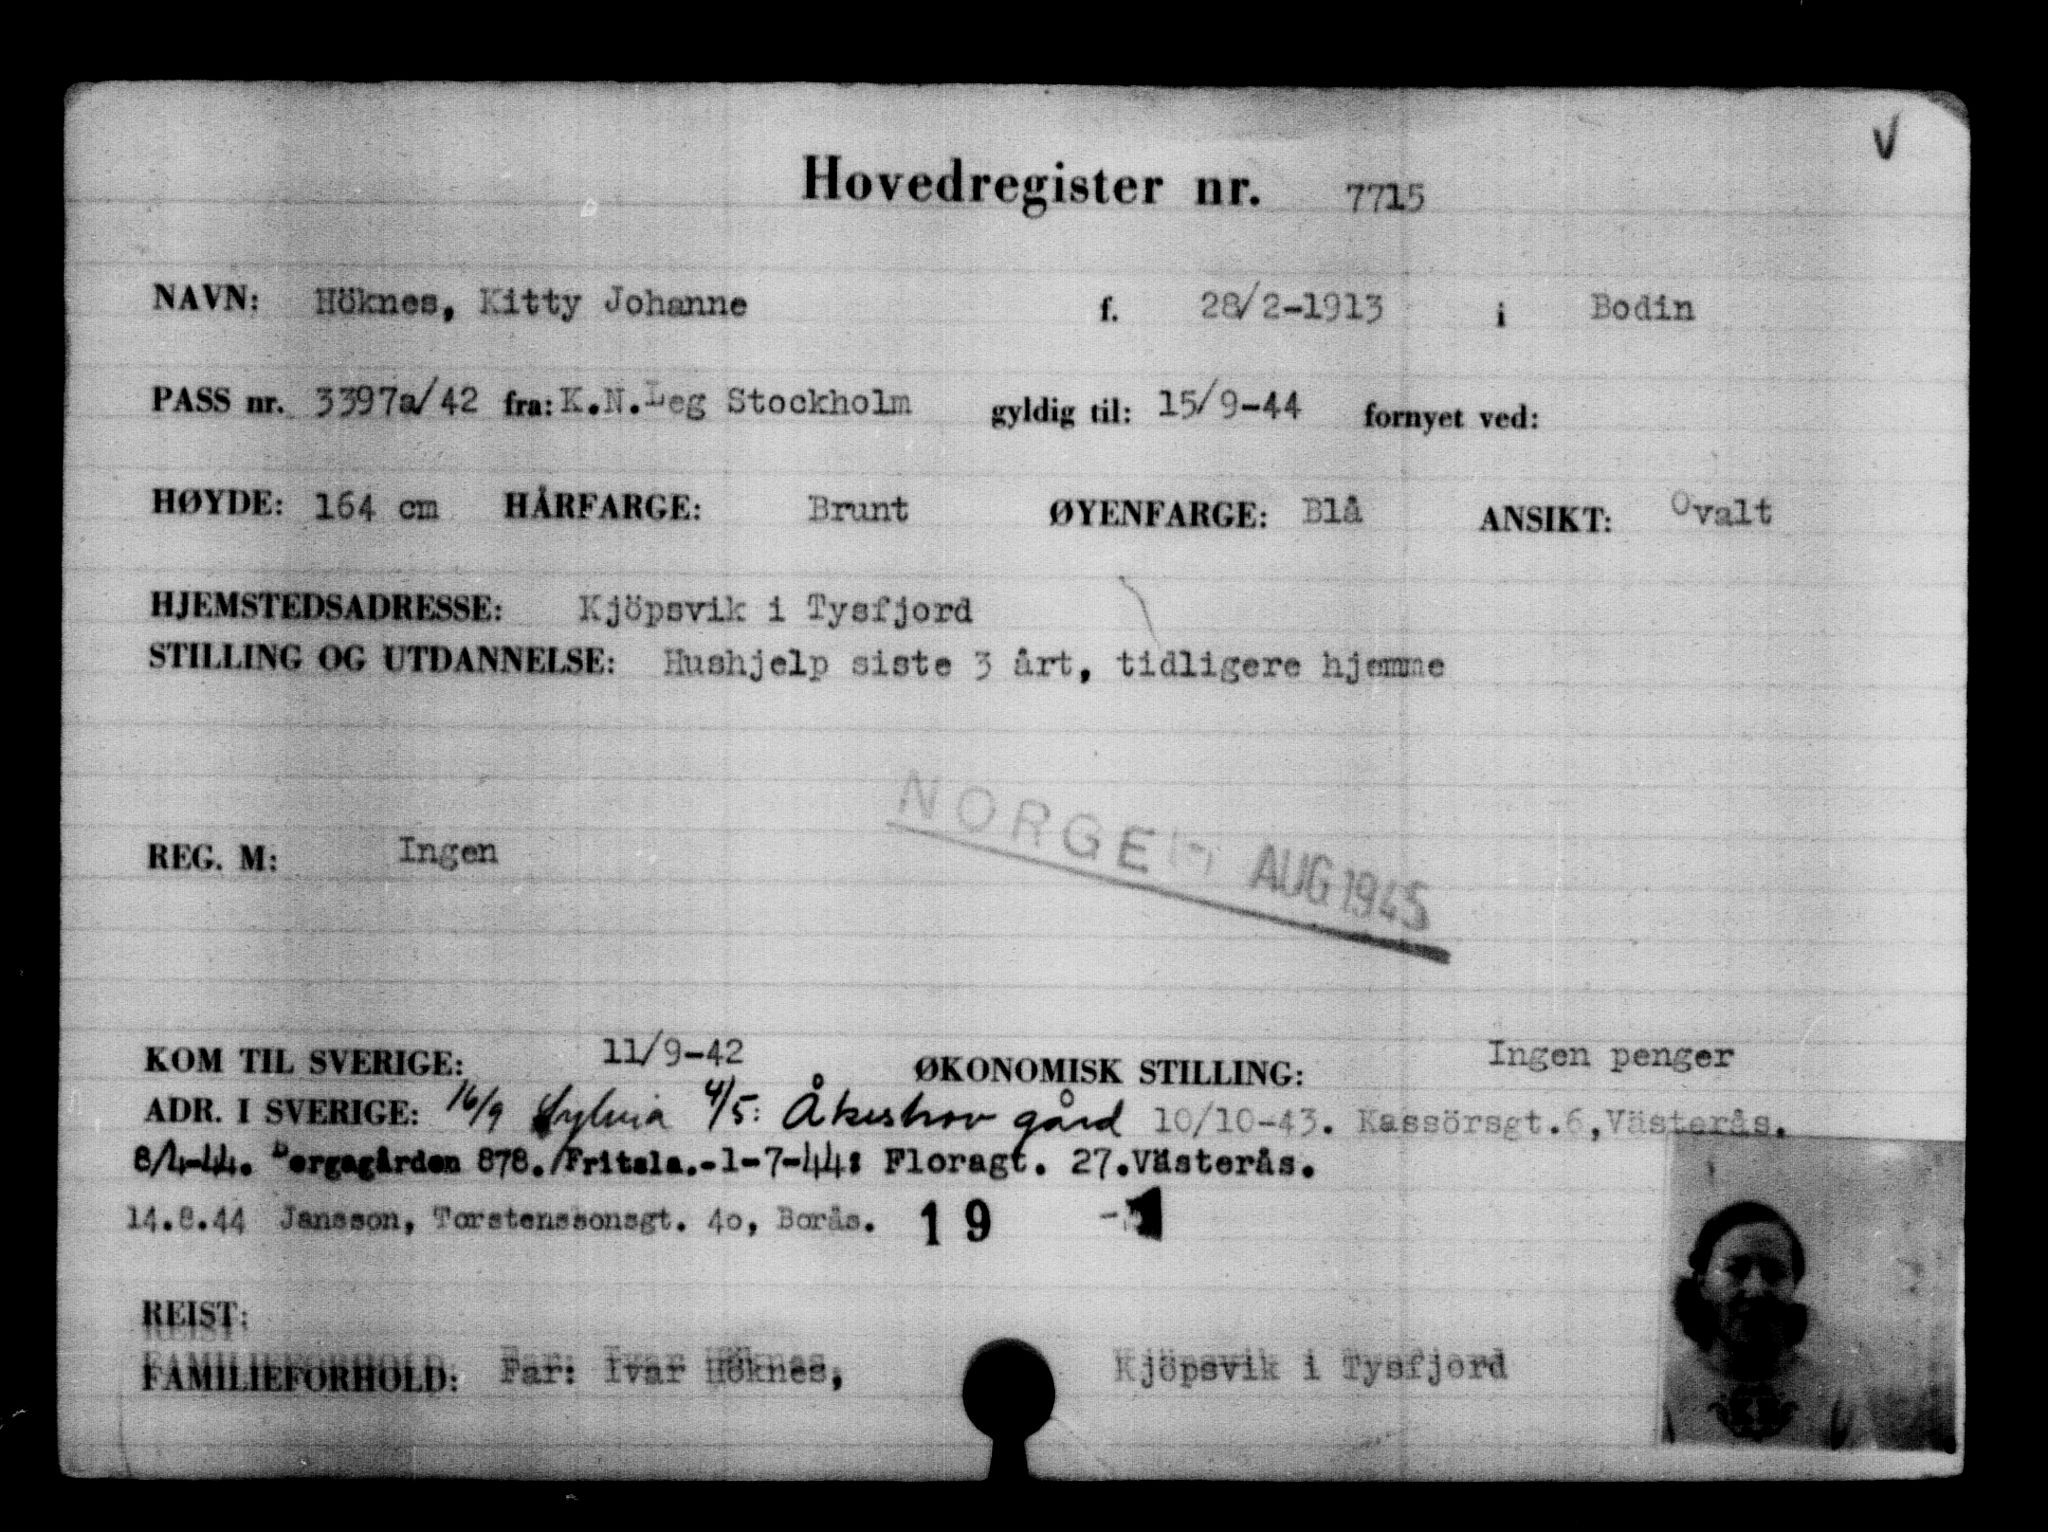 V
Hovedregister nr. 7715
NAVN: Höknes, Kitty Johanne f. 28/2-1913 i Bodin
PASS nr. 3397a/42 fra: K.N.Leg Stockholm gyldig til: 15/9-44 fornyet ved:
HØYDE: 164 cm HÅRFARGE: Brunt ØYENFARGE: Blå ANSIKT: Ovalt
HJEMSTEDSADRESSE: Kjöpsvik i Tysfjord
STILLING OG UTDANNELSE: Hushjelp siste 3 årt, tidligere hjemme
NORGE AUG 1945
REG. M: Ingen
KOM TIL SVERIGE: 11/9-42 ØKONOMISK STILLING: Ingen penger
ADR. I SVERIGE: 16/9 Sylvia 4/5: Åkeshov gård 10/10-43. Kassörsgt.6, Västerås.
8/4-44. Bergagården 878. Fritsla.-1-7-44: Floragt. 27. Västerås.
14.8.44 Jansson, Torstenssonsgt. 4o, Borås. 19
REIST:
FAMILIEFORHOLD: Far: Ivar Höknes, Kjöpsvik i Tysfjord